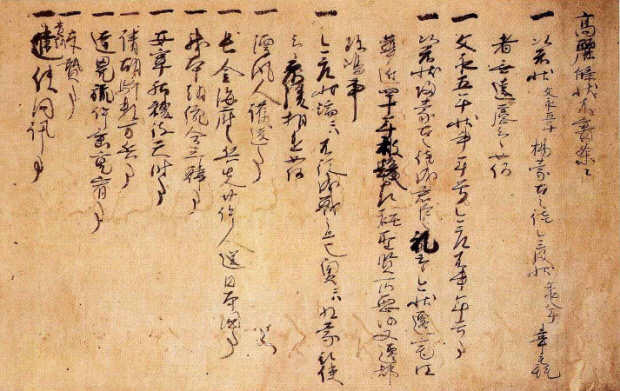 高麗牒状不審条々
一 以前状 文永五年 揚蒙古之徳今度状 文永八年 韋毳
者無遠慮云々如何
一 文永五年状書年号今度不書年号事
一 以前状帰蒙古之徳成君臣之礼云々今状遷宅江
華近四十年被髪左衽聖賢所悪仍又遷都
珍嶋事
一 今度状端ニハ不従成戦之思也奥ニハ為蒙被使
云々前後相違如何
一 漂風人護送事
一 屯金海府之兵先廿許人送日本国事
一 我本朝統合三韓事
一 安寧社稷待天時事
一 請胡騎数万兵事
一 達兇旒許垂寛宥事
一 奉贄事
一 遣使問訊事